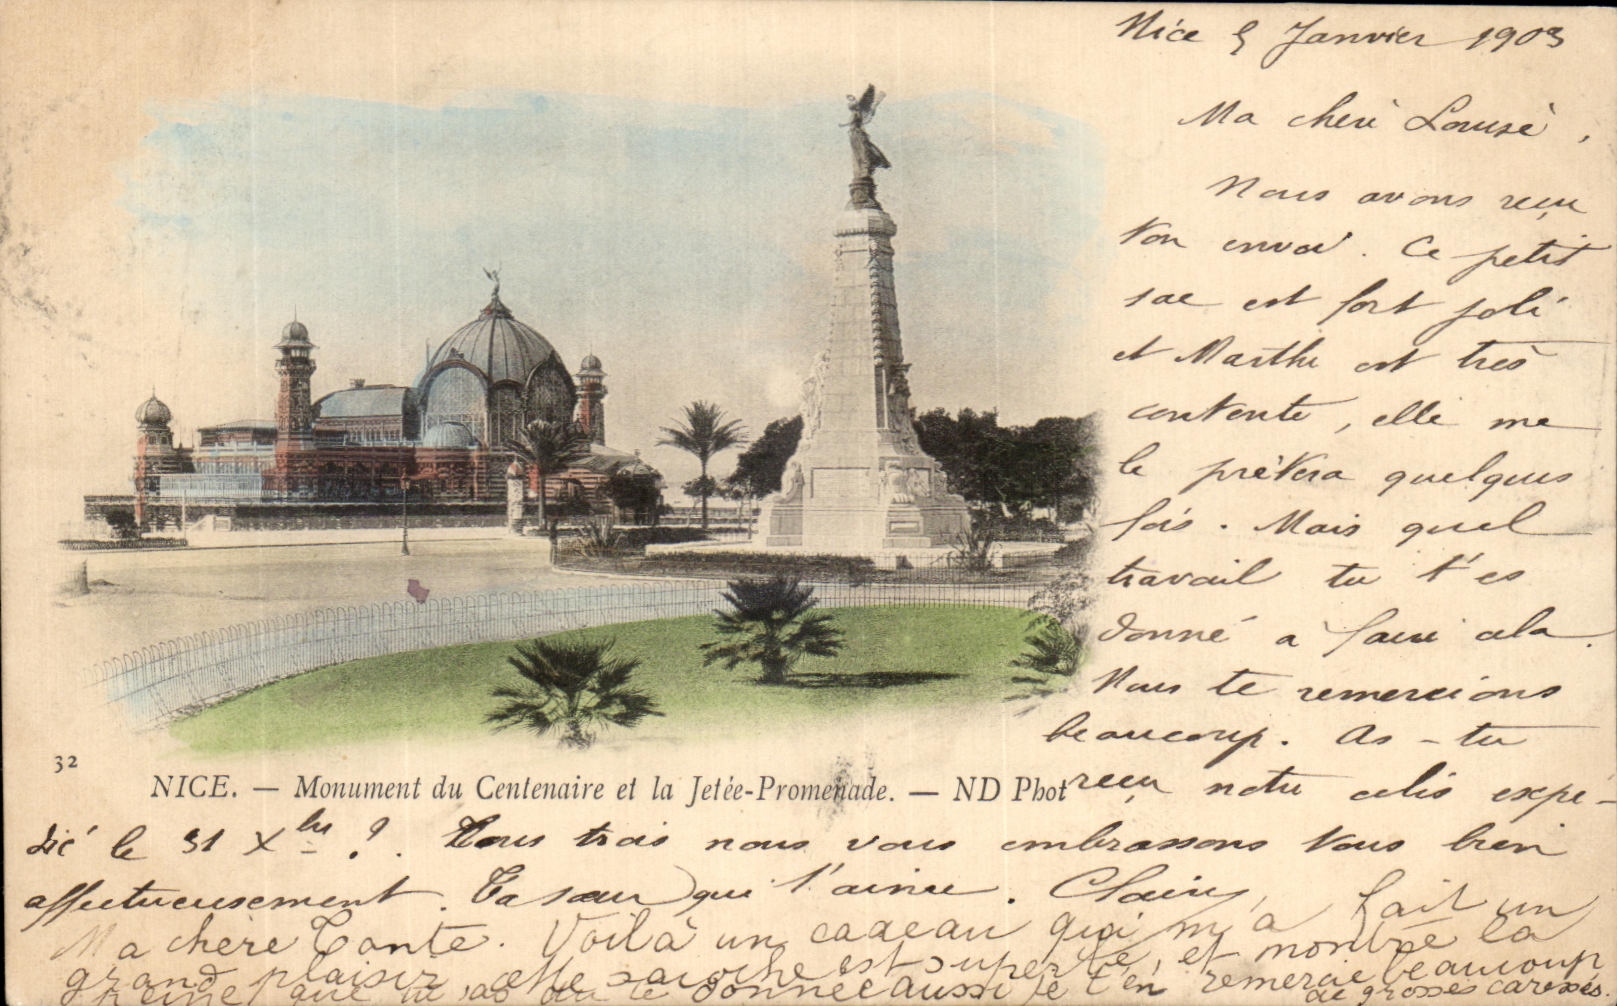 Nice 5 Janvier 1903
Ma chère Louise,
Nous avons reçu
ton envoi. Ce petit
sac est fort joli
et Marthe est très
contente, elle me
le prêtera quelques
fois. Mais quel
travail tu t'es
donné à faire cela.
Nous te remercions
beaucoup. As-tu
reçu notre colis expé-
dié le 31 Xbre ?. Tous trois nous vous embrassons tous bien
affectueusement. Ta sœur qui t'aime. Claire,
32
NICE. — Monument du Centenaire et la Jetée-Promenade. — ND Phot
Ma chère Tante. Voilà un cadeau qui m'a fait un
grand plaisir cette sacoche est superbe, et montre la
peine que tu as du te donner aussi je t'en remercie beaucoup
de grosses caresses.